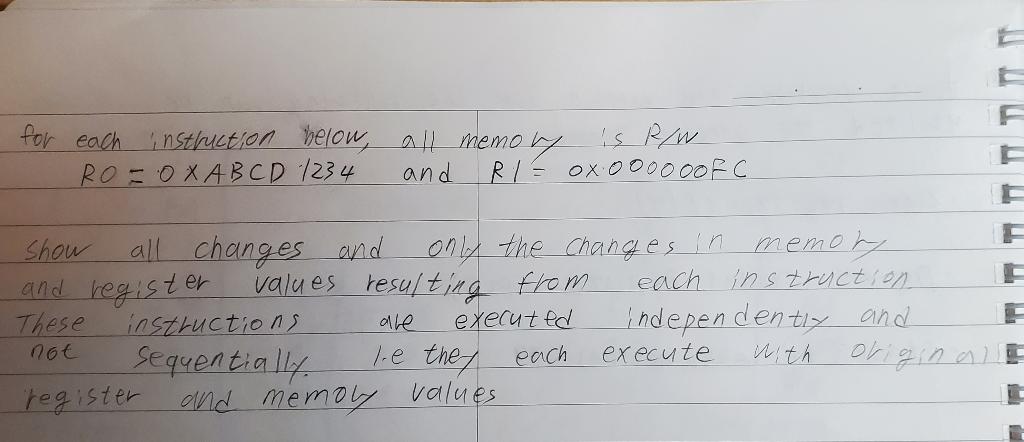 for each instruction below, all memory is R/W
R0 = 0XABCD 1234 and R1 = 0X000000FC
Show all changes and only the changes in memory
and register values resulting from each instruction.
These instructions are executed independently and
not sequentially. I.e they each execute with original
register and memory values